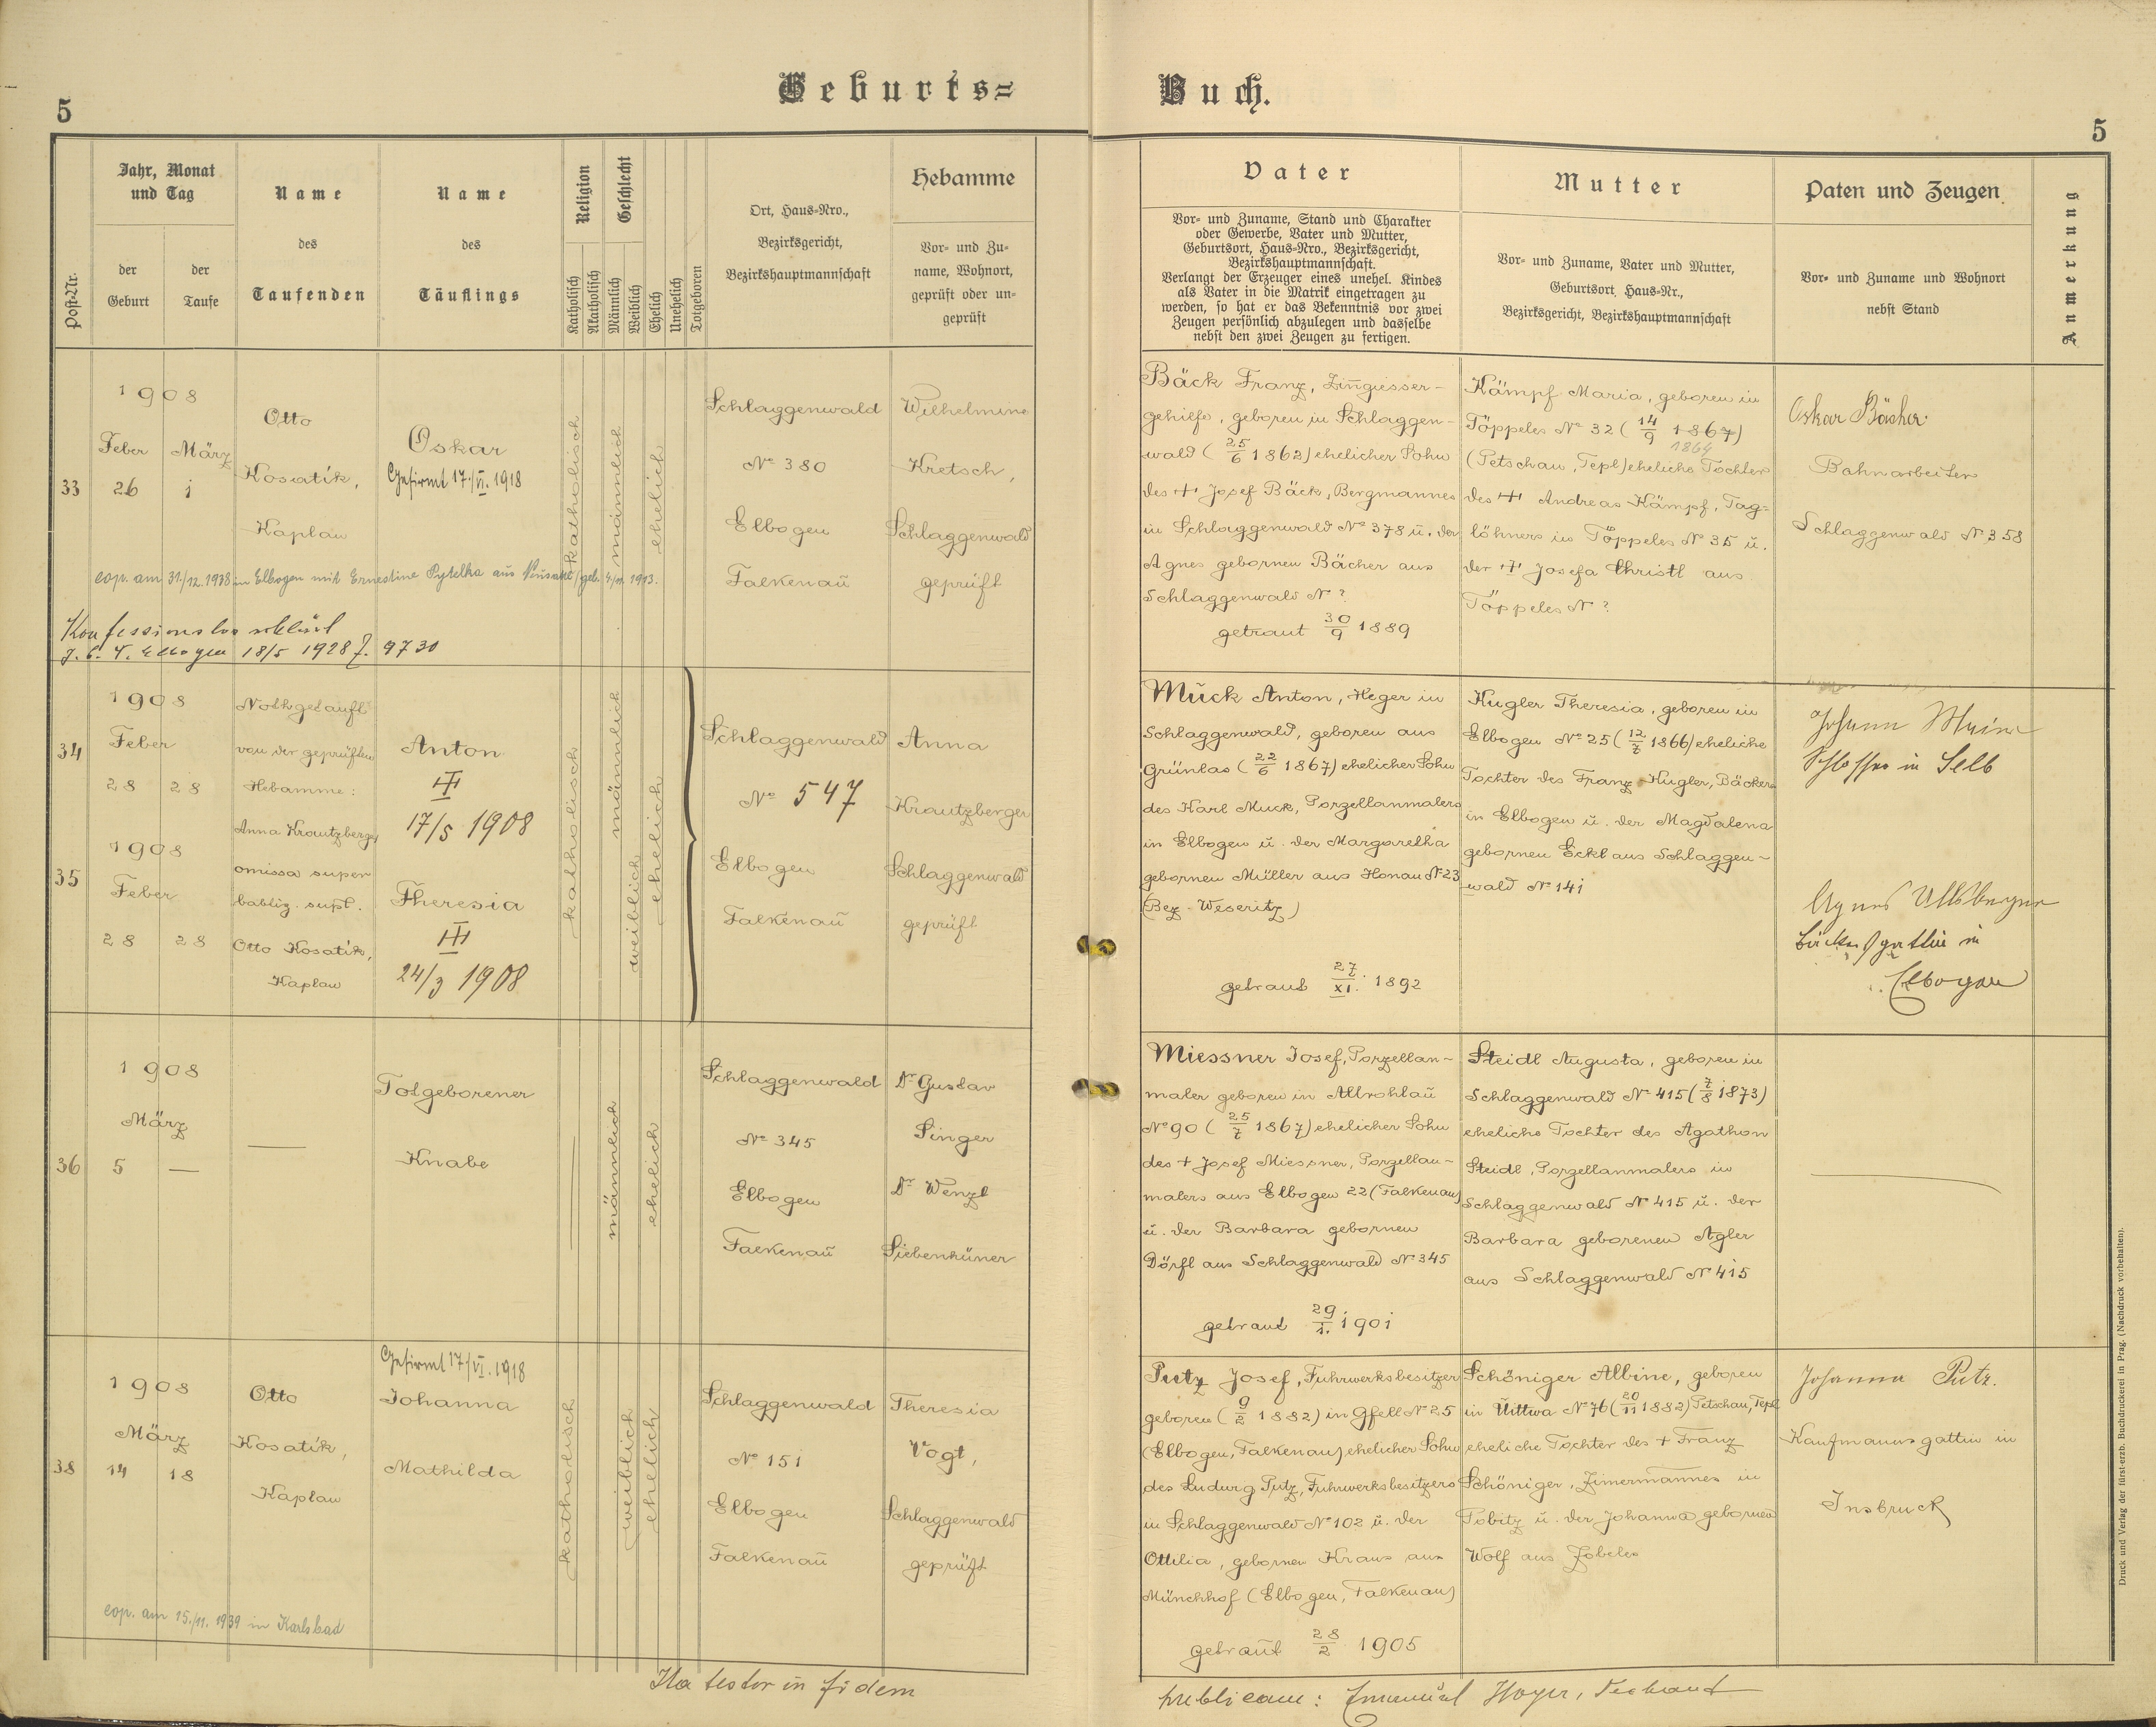 5
Geburts=
Buch.
5
Post-Nr.
Jahr, Monat
und Tag
der
Geburt
der
Taufe
Name
des
Taufenden
Name
des
Täuflings
Religion
Katholisch
Akatholisch
Geschlecht
Männlich
Weiblich
Ehelich
Unehelich
Totgeboren
Ort, Haus=Nro.,
Bezirksgericht,
Bezirkshauptmannschaft
Hebamme
Vor= und Zu=
name, Wohnort,
geprüft oder un=
geprüft
Vater
Vor= und Zuname, Stand und Charakter
oder Gewerbe, Vater und Mutter,
Geburtsort, Haus=Nro., Bezirksgericht,
Bezirkshauptmannschaft.
Verlangt der Erzeuger eines unehel. Kindes
als Vater in die Matrik eingetragen zu
werden, so hat er das Bekenntnis vor zwei
Zeugen persönlich abzulegen und dasselbe
nebst den zwei Zeugen zu fertigen.
Mutter
Vor= und Zuname, Vater und Mutter,
Geburtsort, Haus=Nr.,
Bezirksgericht, Bezirkshauptmannschaft
Paten und Zeugen
Vor= und Zuname und Wohnort
nebst Stand
Anmerkung
33
1908
Feber März
26 1
Otto
Kosatík,
Kaplan
Oskar
Gefirmt 17./VI. 1918
katholisch
männlich
ehelich
Schlaggenwald
No 380
Elbogen
Falkenaŭ
Wilhelmine
Kretsch,
Schlaggenwald
geprüft
cop. am 31./12. 1938 in Elbogen mit Ernestine Pytelka aus /geb. 4/11. 1913.
Konfessionslos erklärt
18/5 1928 Z. 9730
Bäck Franz, Zinngiesser-
gehilfe, geboren in Schlaggen-
wald (25/6 1862) ehelicher Sohn
des + Josef Bäck, Bergmannes
in Schlaggenwald No 378 ŭ. der
Agnes gebornen Bächer aus
Schlaggenwald No ?
getraut 30/9 1889
Kämpf Maria, geboren in
Töppeles No 32 (14/9 1867)
1864
(Petschau, Tepl) eheliche Tochter
des + Andreas Kämpf, Tag=
löhners in Töppeles No 35 ŭ.
der + Josefa Christl aus
Töppeles No ?
Oskar Bächer
Bahnarbeiter
Schlaggenwald No 358
34
1908
Feber
28 28
Nothgetauft
von der geprüften
Hebamme:
Anna Krautzberger
Anton
+
17/5 1908
35
1908
Feber
28 28
omissa super
babtiz. supl.
Otto Kosatík,
Kaplan
Theresia
+
24/3 1908
katholisch
männlich
weiblich
ehelich
Schlaggenwald
No 547
Elbogen
Falkenaŭ
Anna
Krautzberger
Schlaggenwald
geprüft
Mŭck Anton, Heger in
Schlaggenwald, geboren aus
Grünlas (22/6 1867) ehelicher Sohn
des Karl Muck, Porzellanmalers
in Elbogen ŭ. der Margaretha
gebornen Müller aus Honau No 23
(Bez. Weseritz)
getraut 27/XI. 1892
Kugler Theresia, geboren in
Elbogen No 25 (12/7 1866) eheliche
Tochter des Franz Kugler, Bäckers
in Elbogen ŭ. der Magdalena
gebornen Eckl aus Schlaggen-
wald No 141
Johann
Schlosser in Selb
Agnes
Bäckersgattin in
Elbogen
36
1908
März
5 —
—
Totgeborener
Knabe
männlich
ehelich
Schlaggenwald
No 345
Elbogen
Falkenaŭ
Dr Gustav
Singer
Dr Wenzl
Siebenhüner
Miessner Josef, Porzellan-
maler geboren in Altrohlaŭ
No 90 (25/7 1867) ehelicher Sohn
des + Josef Miessner, Porzellan-
malers aus Elbogen 22 (Falkenau)
ŭ. der Barbara gebornen
Dörfl aus Schlaggenwald No 345
getraut 29/1. 1901
Steidl Augusta, geboren in
Schlaggenwald No 415 (7/8 1873)
eheliche Tochter des Agathon
Steidl, Porzellanmalers in
Schlaggenwald No 415 ŭ. der
Barbara geborenen Agler
aus Schlaggenwald No 415
38
1908
März
14 18
Otto
Kosatík,
Kaplan
Gefirmt 17./VI. 1918
Johanna
Mathilda
katholisch
weiblich
ehelich
Schlaggenwald
No 151
Elbogen
Falkenaŭ
Theresia
Vogt,
Schlaggenwald
geprüft
cop. am 15./11. 1939 in Karlsbad
Putz Josef, Fuhrwerksbesitzer
geboren (9/2 1882) in Gfell No 25
(Elbogen, Falkenau) ehelicher Sohn
des Ludwig Putz, Fuhrwerksbesitzers
in Schlaggenwald No 102 ŭ. der
Ottilia, gebornen Kraus aus
Münchhof (Elbogen, Falkenau)
getraŭt 28/2 1905
Schöniger Albine, geboren
in Ŭittwa No 76 (20/11 1882) Petschau, Tepl
eheliche Tochter des + Franz
Schöniger, Zimermannes in
Tobitz ŭ. der Johanna gebornen
Wolf aus Zobeles
Johanna Putz.
Kaufmannsgattin in
Insbruck
Ita testor in fidem
publicam: Emanuel Hoyer, Dechant
Druck und Verlag der fürst-erzb. Buchdruckerei in Prag. (Nachdruck vorbehalten).